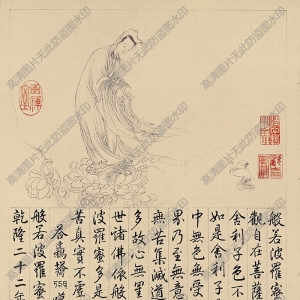 般若波羅蜜
觀自在菩薩
舍利子色不
如是舍利子
中無色無受
界乃至無意
無苦集滅道
多故心無罣
世諸佛依般
波羅蜜多是
苦真實不虛
般若波羅蜜
乾隆二十二年
高清图片无此防盗图水印